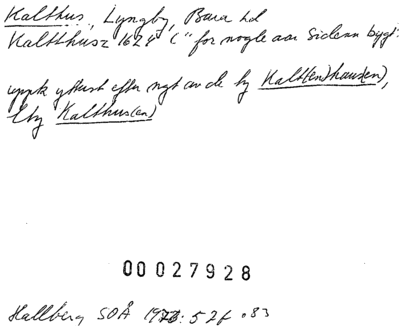 Kalthus, Lyngby, Bara hd
Kaltthusz 1624 ("for nogle aar Sidenn bygt"
uppk ytterst efter ngt av de ty Kalt(en)haus(en),
lty Kalthus(en)
00027928
Hallberg SOÅ 1973: 52f .83